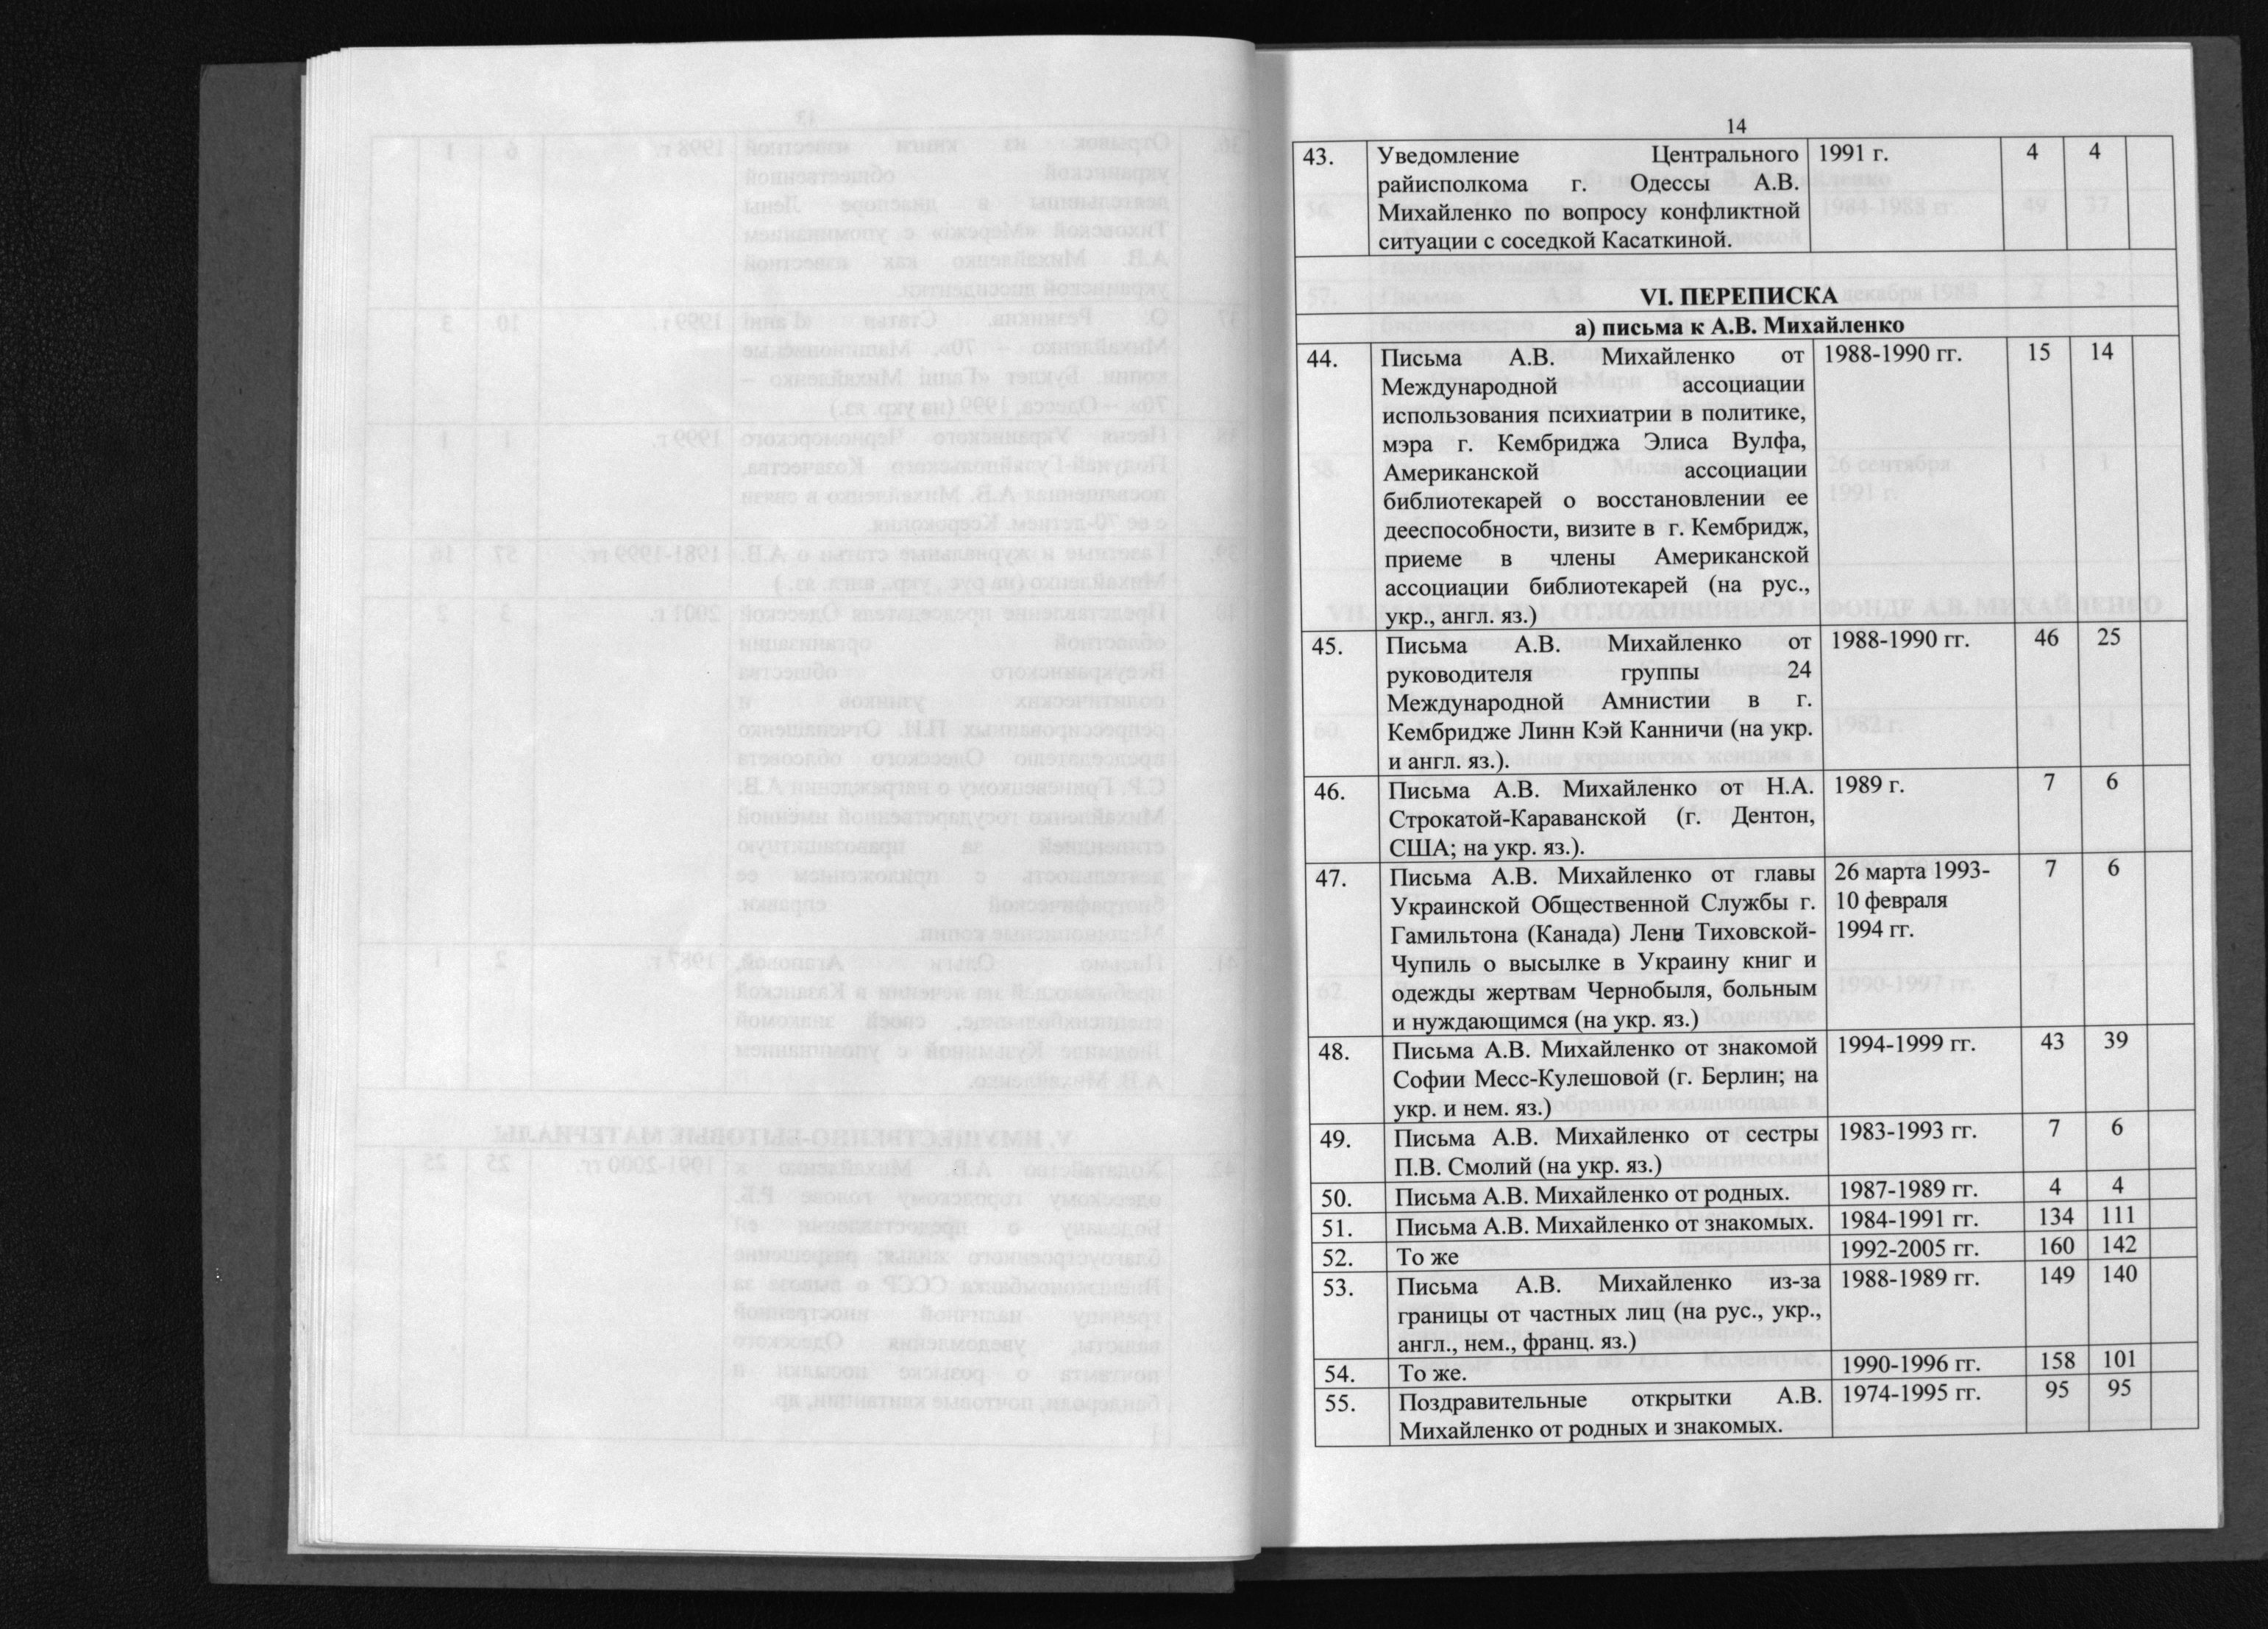 14
43. Уведомление Центрального 1991 г. 4 4
райисполкома г. Одессы А.В.
Михайленко по вопросу конфликтной
ситуации с соседкой Касаткиной.
VI. ПЕРЕПИСКА
а) письма к А.В. Михайленко
44. Письма А.В. Михайленко от 1988-1990 гг. 15 14
Международной ассоциации
использования психиатрии в политике,
мэра г. Кембриджа Элиса Вулфа,
Американской ассоциации
библиотекарей о восстановлении ее
дееспособности, визите в г. Кембридж,
приеме в члены Американской
ассоциации библиотекарей (на рус.,
укр., англ. яз.)
45. Письма А.В. Михайленко от 1988-1990 гг. 46 25
руководителя группы 24
Международной Амнистии в г.
Кембридже Линн Кэй Канничи (на укр.
и англ. яз.).
46. Письма А.В. Михайленко от Н.А. 1989 г. 7 6
Строкатой-Караванской (г. Дентон,
США; на укр. яз.).
47. Письма А.В. Михайленко от главы 26 марта 1993- 7 6
Украинской Общественной Службы г. 10 февраля
Гамильтона (Канада) Лены Тиховской- 1994 гг.
Чупиль о высылке в Украину книг и
одежды жертвам Чернобыля, больным
и нуждающимся (на укр. яз.)
48. Письма А.В. Михайленко от знакомой 1994-1999 гг. 43 39
Софии Месс-Кулешовой (г. Берлин; на
укр. и нем. яз.)
49. Письма А.В. Михайленко от сестры 1983-1993 гг. 7 6
П.В. Смолий (на укр. яз.)
50. Письма А.В. Михайленко от родных. 1987-1989 гг. 4 4
51. Письма А.В. Михайленко от знакомых. 1984-1991 гг. 134 111
52. То же 1992-2005 гг. 160 142
53. Письма А.В. Михайленко из-за 1988-1989 гг. 149 140
границы от частных лиц (на рус., укр.,
англ., нем., франц. яз.)
54. То же. 1990-1996 гг. 158 101
55. Поздравительные открытки А.В. 1974-1995 гг. 95 95
Михайленко от родных и знакомых.